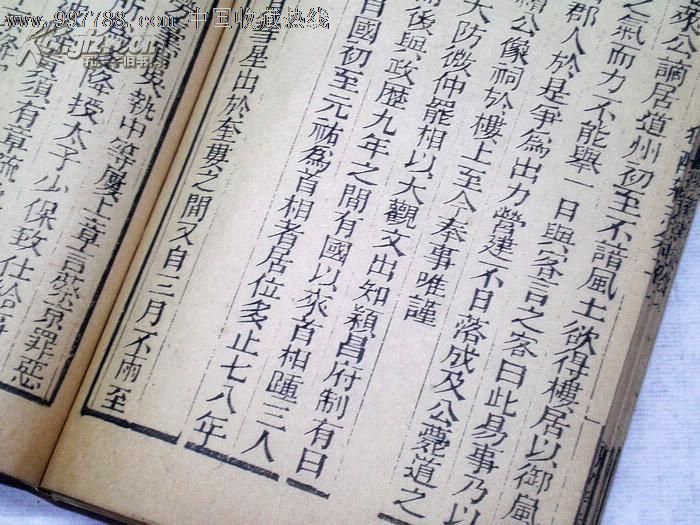 www.997788.com 中国收藏热线
來公謫居道州初至不諳風土欲得樓居以御嵐
之氣而力不能舉一日與客言之客曰此易事乃以
郡人於是爭為出力營建不日落成及公薨道之
公像祠於樓上至今奉事唯謹
大防微仲罷相以大觀文出知穎昌府制有曰
係與政歷九年之間有國以來首相踵三人
自國初至元祐為首相者居位多止七八年
星出於奎婁之間又自三月不雨至
執中等屢上章言罪惡
授太子少保致仕給事
須有章疏